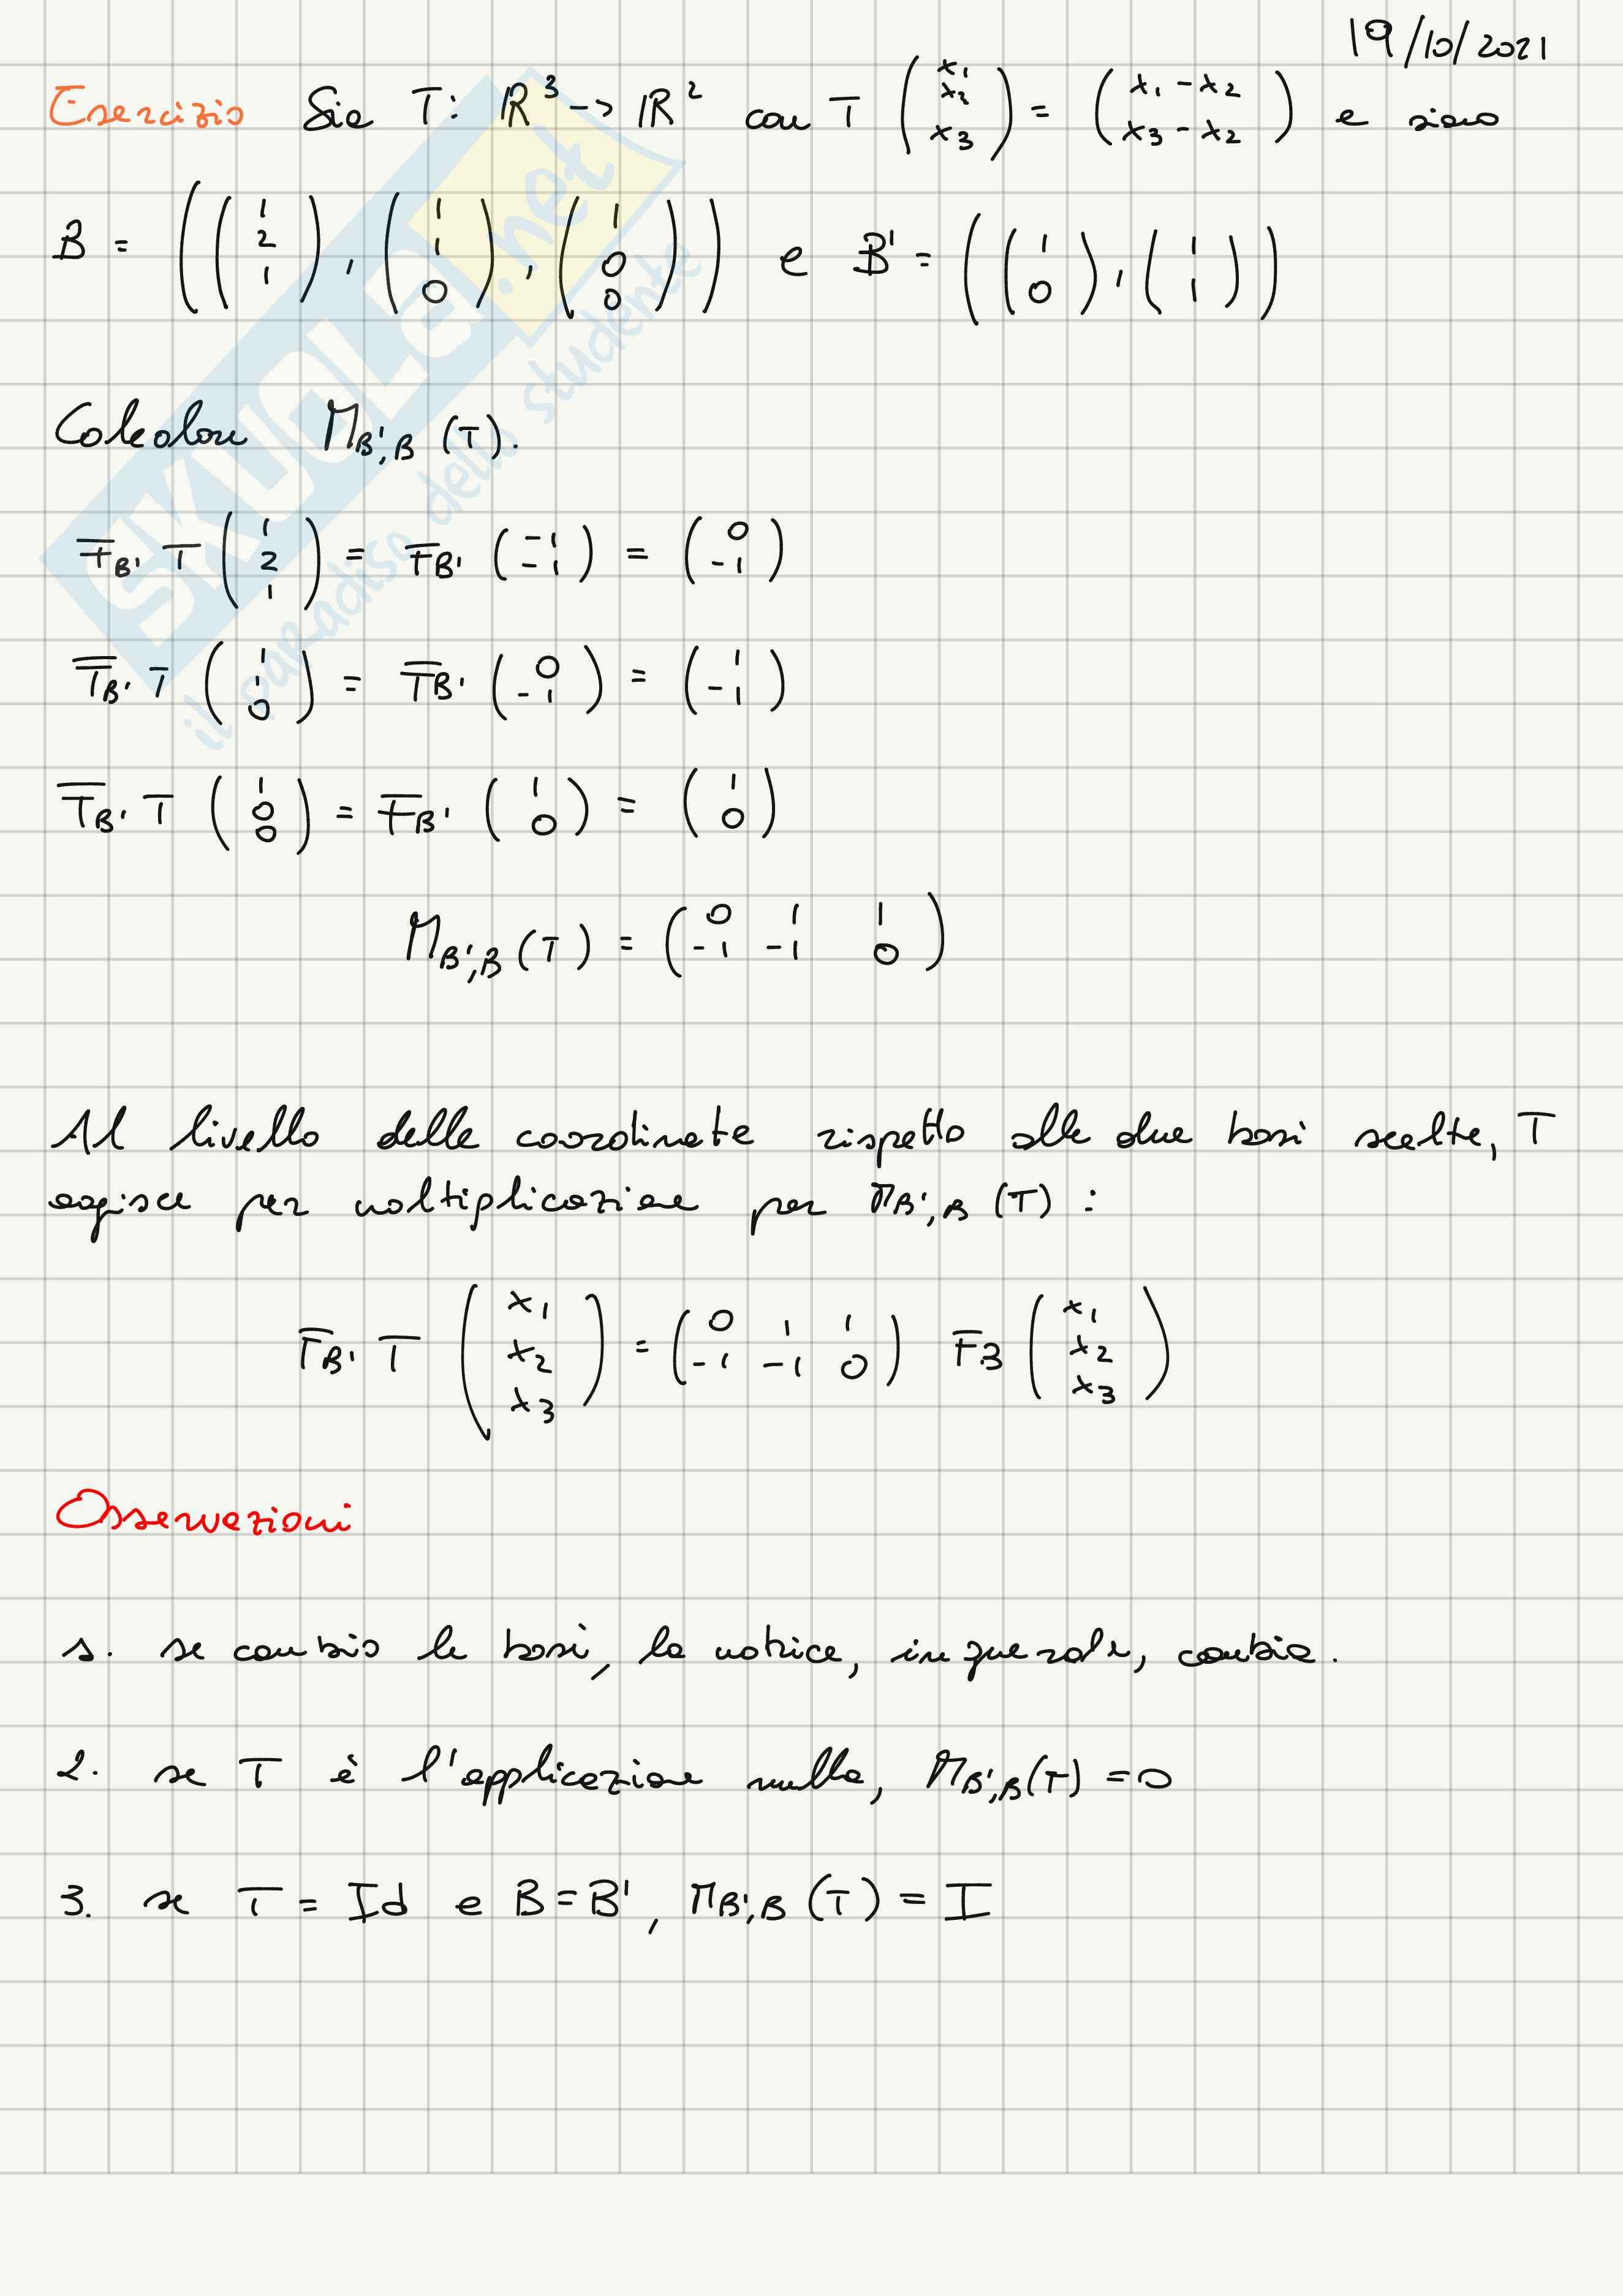 19/10/2021
Esercizio Sia T: ℝ³ -> ℝ² con T (x₁ x₂ x₃) = (x₁ - x₂ x₃ - x₂) e siano
B = ((1 2 1), (1 1 0), (1 0 0)) e B' = ((1 0), (1 1))
Calcolare M_B',B (T).
F_B' T (1 2 1) = F_B' (-1 -1) = (0 -1)
F_B' T (1 1 0) = F_B' (0 -1) = (1 -1)
F_B' T (1 0 0) = F_B' (1 0) = (1 0)
M_B',B (T) = (0 1 1 -1 -1 0)
Al livello delle coordinate rispetto alle due basi scelte, T
agisce per moltiplicazione per M_B',B (T) :
F_B' T (x₁ x₂ x₃) = (0 1 1 -1 -1 0) F_B (x₁ x₂ x₃)
Osservazioni
1. se cambio le basi, la matrice, in generale, cambia.
2. se T è l'applicazione nulla, M_B',B (T) = 0
3. se T = Id e B = B', M_B',B (T) = I
SKUOLA.net
il paradiso dello studente